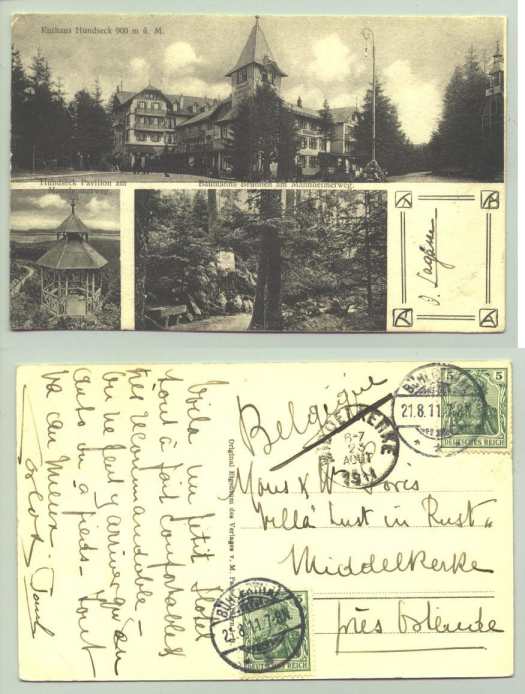 Kurhaus Hundseck 900 m ü. M.
Hundseck Pavillon am
Baumanns Brunnen am Mannheimerweg.
Voilà un petit Hotel
tout à fait confortable &
très recommandable –
on ne peut y arriver qu'en
auto ou à pieds – tout
va au mieux.
Original Eigentum des Verlages v. M.
Belgique
Mons & Mme Joris
Villa "Lust in Rust"
Middelkerke
près Ostende
21.8.11.7-8N.
5 5
DEUTSCHES REICH
MIDDELKERKE
6-7
23
AOUT
1911
21.8.11.7-8N.
DEUTSCHES REICH